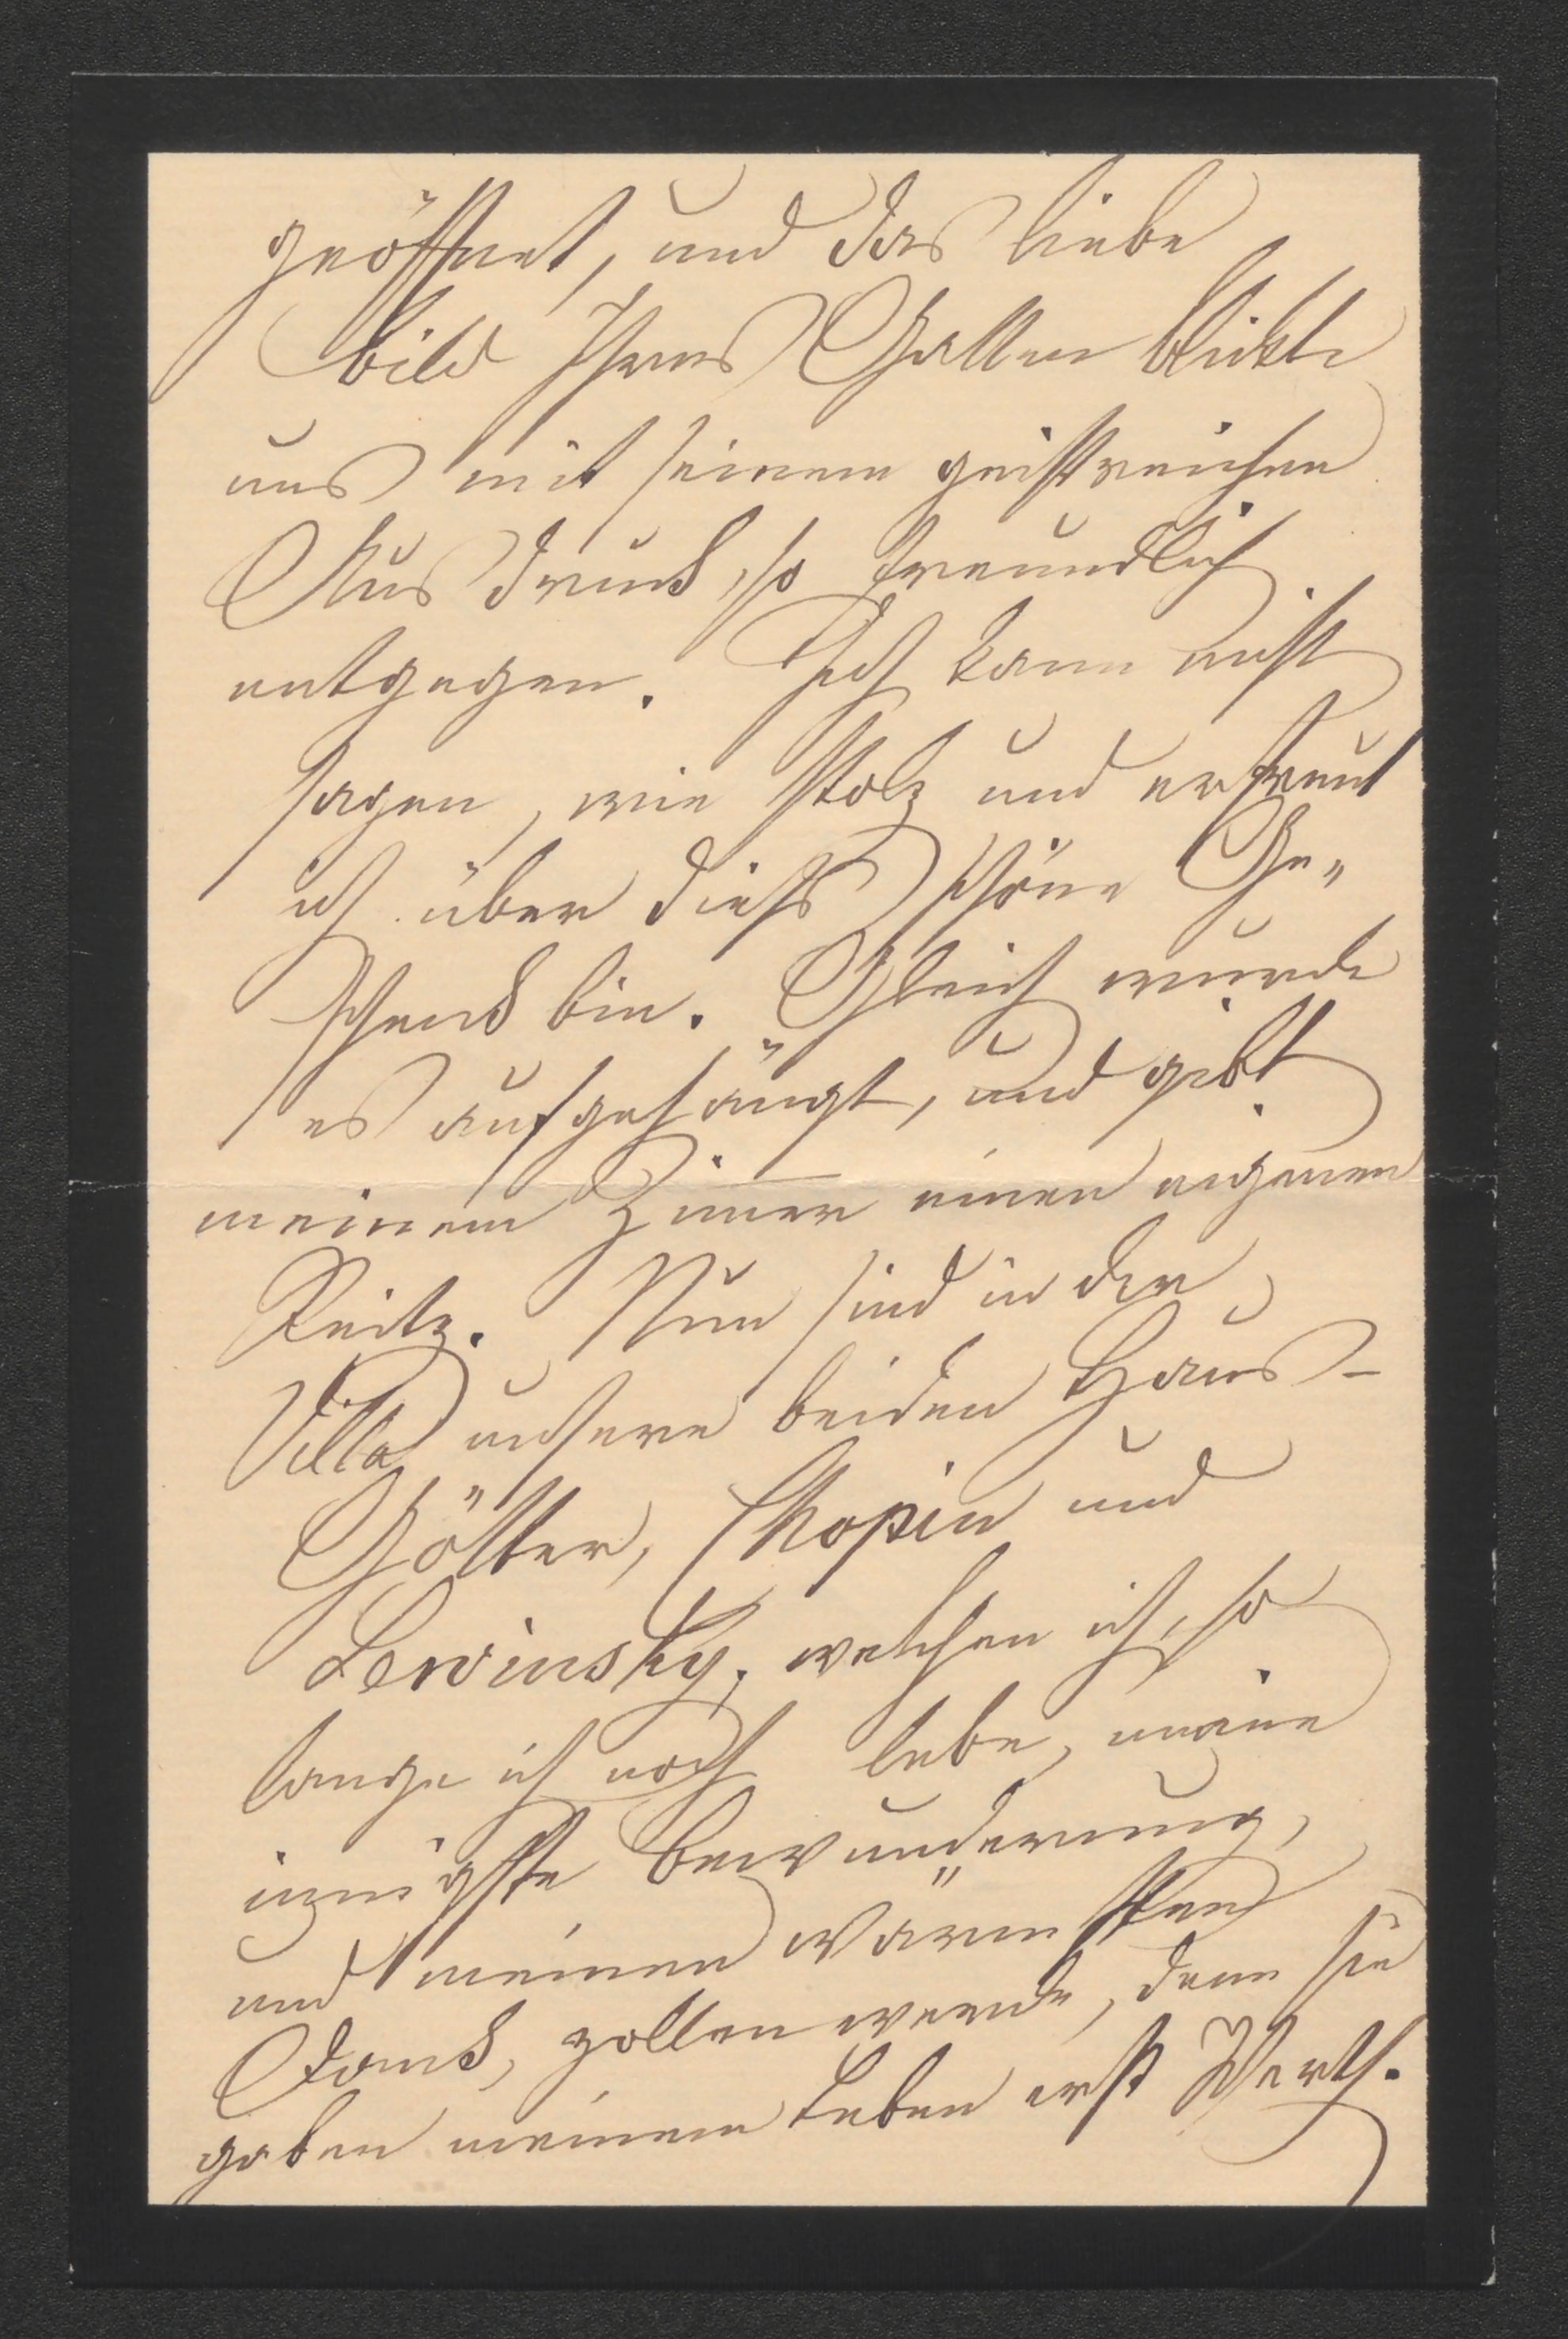 geöffnet, und das liebe
Bild Ihres Gatten blickte
uns mit seinem geistreichen
Ausdruck, so freundlich
entgegen. Ich kann nicht
sagen, wie stolz und erfreut
ich über dieß schöne Ge„
schenk bin. Gleich wurde
es aufgehängt, und gibt
meinem Zimer einen eigenen
Reitz. Nun sind in der
Villa unsere beiden Haus-
Götter, Chopin und
Lewinsky, welchen ich, so
lange ich noch lebe, meine
innigste Bewunderung,
und meinen wärmsten
Dank, zollen werde, denn sie
gaben meinem Leben erst Werth.